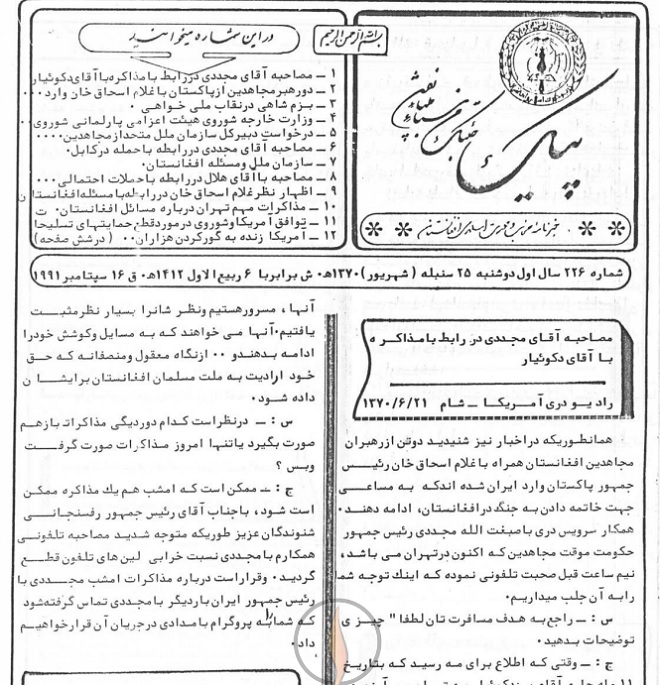 بسم الله الرحمن الرحیم
پیام
خبرنامه حزب وحدت اسلامی افغانستان
در این شماره میخوانید
۱ – مصاحبه آقای مجددی در رابطه با مذاکره با آقای دکوئیار
۲ – دورهبر مجاهدین از پاکستان با غلام اسحاق خان وارد ۰۰۰
۳ – بزم شاهی در نقاب ملی خواهی ۰
۴ – وزارت خارجه شوروی هیئت اعزامی پارلمانی شوروی ۰۰
۵ – درخواست دبیر کل سازمان ملل متحد از مجاهدین ۰۰۰۰
۶ – مصاحبه آقای مجددی در رابطه با حمله در کابل ۰
۷ – سازمان ملل و مسئله افغانستان ۰
۸ – مصاحبه با آقای هلال در رابطه با حملات احتمالی ۰۰۰
۹ – اظهار نظر غلام اسحاق خان در رابطه با مسئله افغانستان
۱۰ – مذاکرات مهم تهران درباره مسائل افغانستان ۰
۱۱ – توافق آمریکا و شوروی در مورد قطع حمایتهای تسلیحا ت
۱۲ – آمریکا زنده به گور کردن هزاران ۰۰ ( در شش صفحه )
شماره ۲۲۶ سال اول دوشنبه ۲۵ سنبله ( شهریور ) ۱۳۷۰ه‍ ۰ ش برابر با ۶ ربیع الاول ۱۴۱۲ه‍ ۰ ق ۱۶ سپتامبر ۱۹۹۱
مصاحبه آقای مجددی در رابط با مذاکره
با آقای دکوئیار
رادیو دری آمریکا – شام ۱۳۷۰/۶/۲۱
همانطوریکه در اخبار نیز شنیدید دوتن از رهبران
مجاهدین افغانستان همراه با غلام اسحاق خان رئیس
جمهور پاکستان وارد ایران شده اندکه به مساعی
جهت خاتمه دادن به جنگ در افغانستان، ادامه دهند ۰
همکار سرویس دری با صبغت الله مجددی رئیس جمهور
حکومت موقت مجاهدین که اکنون در تهران می باشد ،
نیم ساعت قبل صحبت تلفونی نموده که اینك توجه شما
را به آن جلب میداریم ۰
س : – راجع به هدف مسافرت تان لطفا " چیزی
توضیحات بدهید ۰
ج : – وقتی که اطلاع برای مه رسید که بتاریخ
آنها ، مسرور هستیم ونظر شانرا بسیار نظر مثبت
یافتیم ۰ آنها می خواهند که به مسایل وکوشش خودرا
ادامه بدهندو ۰۰ ازنگاه معقول ومنصفانه که حق
خود ارادیت به ملت مسلمان افغانستان برایشان
داده شود ۰
س : – درنظراست کدام دوردیگی مذاکرات بازهم
صورت بگیرد یاتنها امروز مذاکرات صورت گرفت
وبس ؟
ج : – ممکن است که امشب هم یك مذاکره ممکن
است شود ، باجناب آقای رئیس جمهور رفسنجانی
شنوندگان عزیز طوریکه متوجه شدید مصاحبه تلفونی
همکارم بامجددی نسبت خرابی لین های تلفون قطع
گردید ۰ وقراراست درباره مذاکرات امشب مجددی با
رئیس جمهور ایران باردیگر بامجددی تماس گرفته شود
که شمارا به پروگرام بامدادی درجریان آن قرارخواهیم
داد ۰